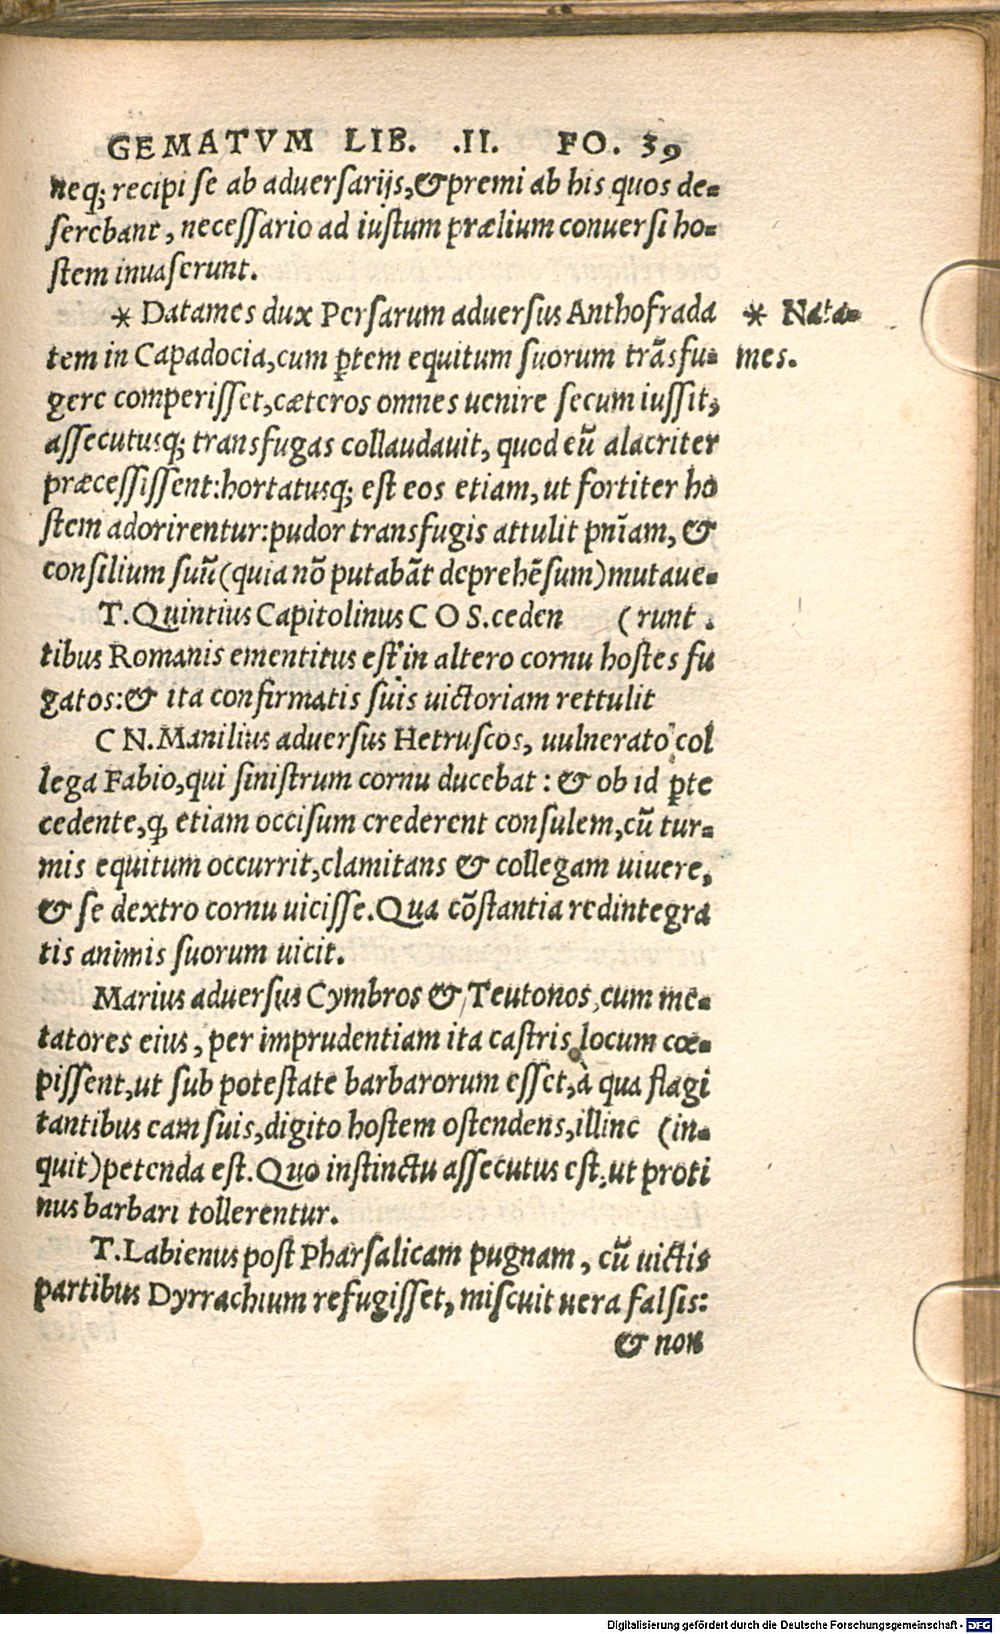 GEMATVM LIB. .II. FO. 39
neq; recipi se ab aduersarijs, & premi ab his quos de-
serebant, necessario ad iustum prælium conuersi ho-
stem inuaserunt.
* Datames dux Persarum aduersus Anthofrada
* Nata-
tem in Capadocia, cum ꝑtem equitum suorum trãsfu-
mes.
gere comperisset, cæteros omnes uenire secum iussit,
assecutusq; transfugas collaudauit, quod eũ alacriter
præcessissent: hortatusq; est eos etiam, ut fortiter ho
stem adorirentur: pudor transfugis attulit pnĩam, &
consilium suũ (quia nõ putabãt deprehẽsum) mutaue-
T. Quintius Capitolinus C O S. ceden (runt.
tibus Romanis ementitus est in altero cornu hostes fu
gatos: & ita confirmatis suis uictoriam rettulit
C N. Manilius aduersus Hetruscos, uulnerato col
lega Fabio, qui sinistrum cornu ducebat: & ob id ꝑte
cedente, q, etiam occisum crederent consulem, cũ tur-
mis equitum occurrit, clamitans & collegam uiuere,
& se dextro cornu uicisse. Qua cõstantia redintegra
tis animis suorum uicit.
Marius aduersus Cymbros & Teutonos, cum me-
tatores eius, per imprudentiam ita castris locum cœ-
pissent, ut sub potestate barbarorum esset, à qua flagi
tantibus eam suis, digito hostem ostendens, illinc (in-
quit) petenda est. Quo instinctu assecutus est, ut proti
nus barbari tollerentur.
T. Labienus post Pharsalicam pugnam, cũ uictis
partibus Dyrrachium refugisset, miscuit uera falsis:
& non
Digitalisierung gefördert durch die Deutsche Forschungsgemeinschaft - DFG